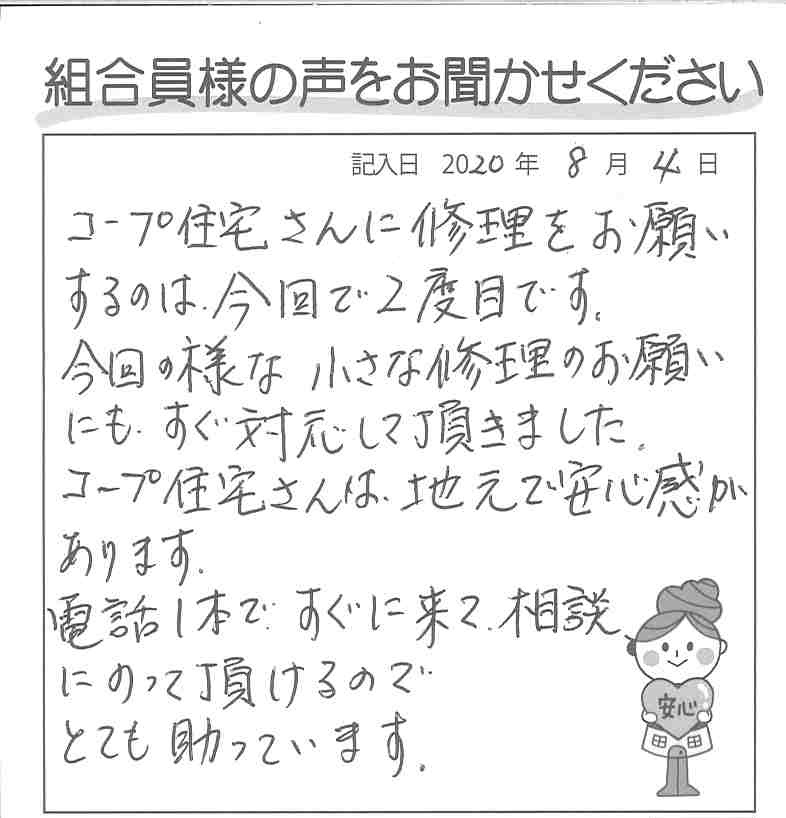 組合員様の声をお聞かせください
記入日 2020年 8月 4日
コープ住宅さんに修理をお願い
するのは、今回で2度目です。
今回の様な 小さな修理のお願い
にも、すぐ対応して頂きました。
コープ住宅さんは、地元で安心感が
あります。
電話1本で、すぐに来て、相談
にのって頂けるので
とても助っています。
安心